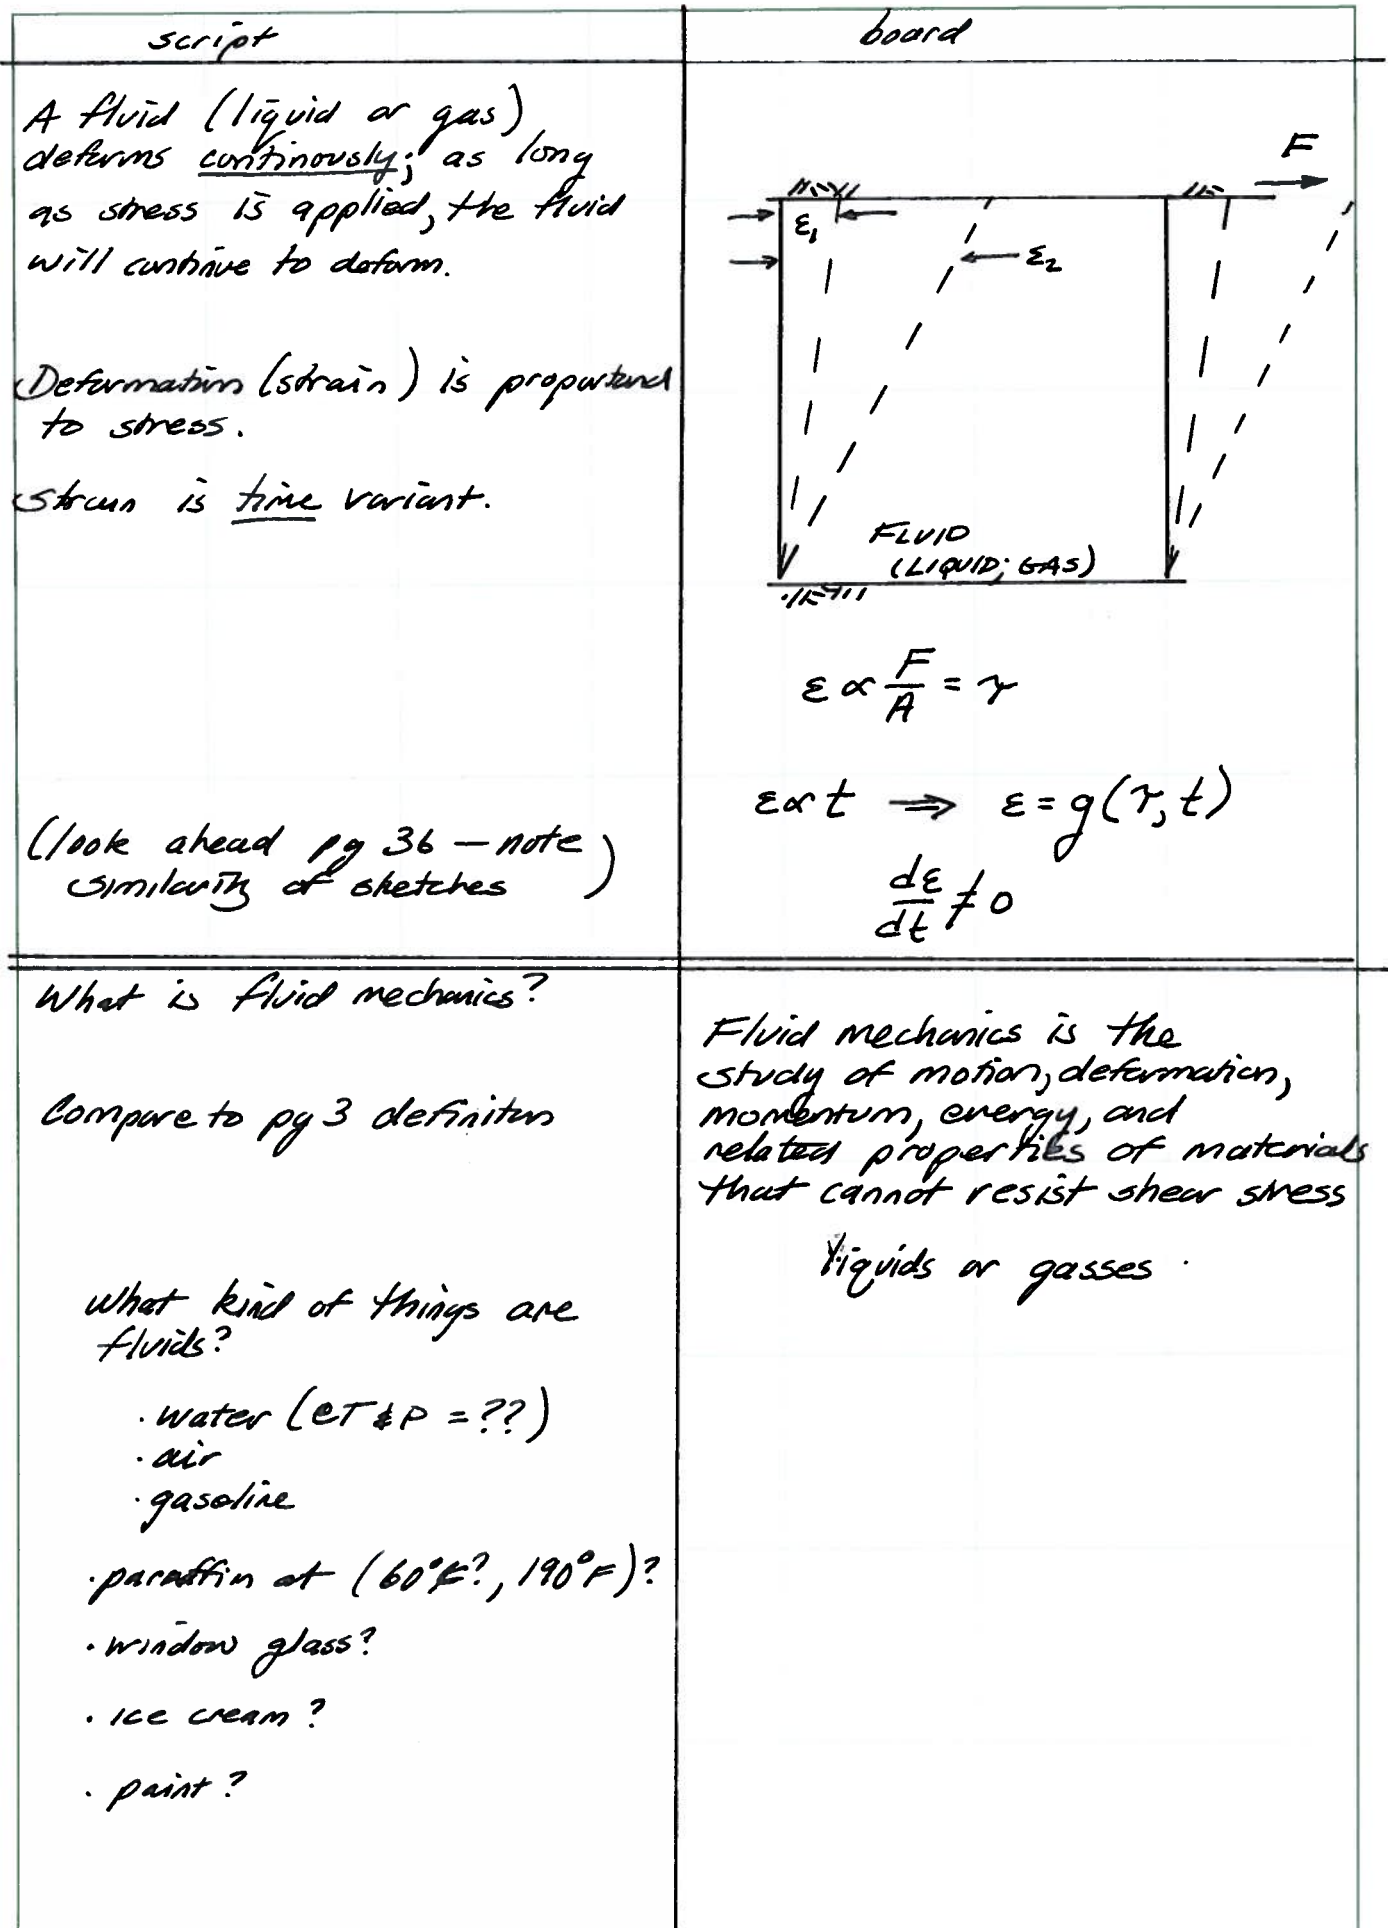 script
board
A fluid (liquid or gas)
deforms continously; as long
as stress is applied, the fluid
will continue to deform.
Deformation (strain) is proportional
to stress.
Strain is time variant.
(look ahead pg 36 — note
similarity of sketches)
F
ε₁
ε₂
FLUID
(LIQUID; GAS)
ε ∝ F/A = τ
ε ∝ t ⇒ ε = g(τ, t)
dε/dt ≠ 0
What is fluid mechanics?
Compare to pg 3 definiton
What kind of things are
fluids?
· water (@T & P = ??)
· air
· gasoline
· paraffin at (60°F?, 190°F)?
· window glass?
· ice cream?
· paint?
Fluid mechanics is the
study of motion, deformation,
momentum, energy, and
related properties of materials
that cannot resist shear stress
liquids or gasses.